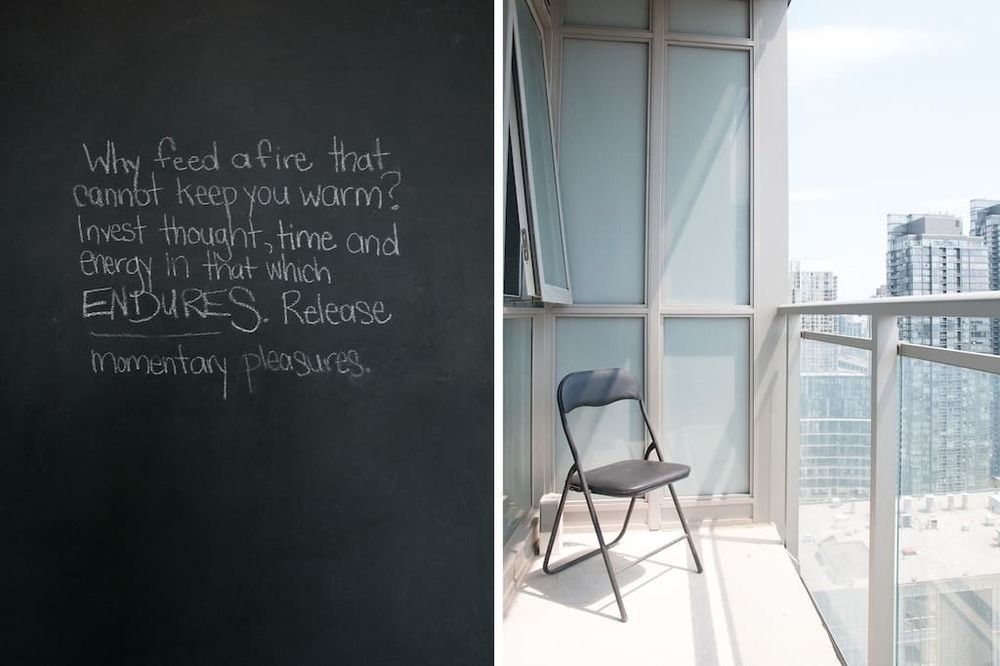 Why feed a fire that
cannot keep you warm?
Invest thought, time and
energy in that which
ENDURES. Release
momentary pleasures.